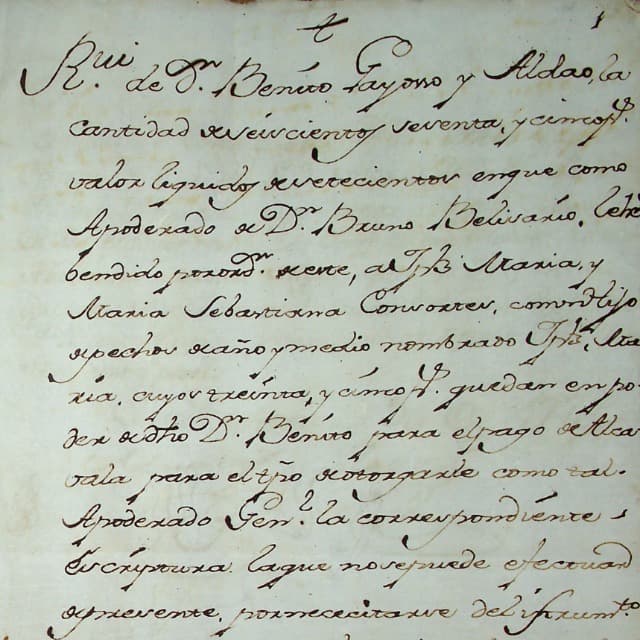 1
Rvi de Dn. Benito Gayoso y Aldao, la
cantidad de seiscientos sesenta, y cinco ps.
valor liquido, de setecientos en que como
Apoderado de Dn. Bruno Belisario, le he
bendido por ordn. de este, a Jph. Maria, y
Maria Sebastiana Consortes, con un Hijo
de pechos de año y medio nombrado Jph. Ma
ria, cuyos treinta, y cinco ps. quedan en po
der de dho Dn. Benito para el pago de Alca
vala para el tpo de otorgarle como tal
Apoderado Genl. la correspondiente
Escriptura. la que no se puede efectuar
de presente, por nececitarse del